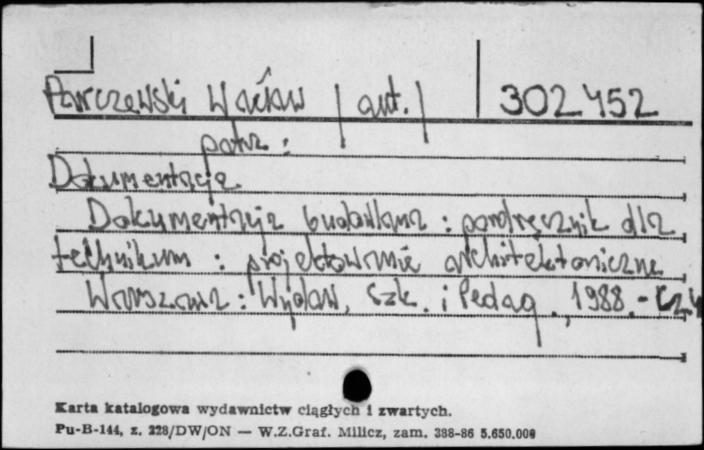 Parczewski Wacław /aut./ 302452
patrz:
Dokumentacja
Dokumentacja budowlana : podręcznik dla
technikum : projektowanie architektoniczne
Warszawa : Wydaw. Szk. i Pedag., 1988. - Cz.4
Karta katalogowa wydawnictw ciągłych i zwartych.
Pu-B-144, z. 228/DW/ON — W.Z.Graf. Milicz, zam. 388-86 5.650.000